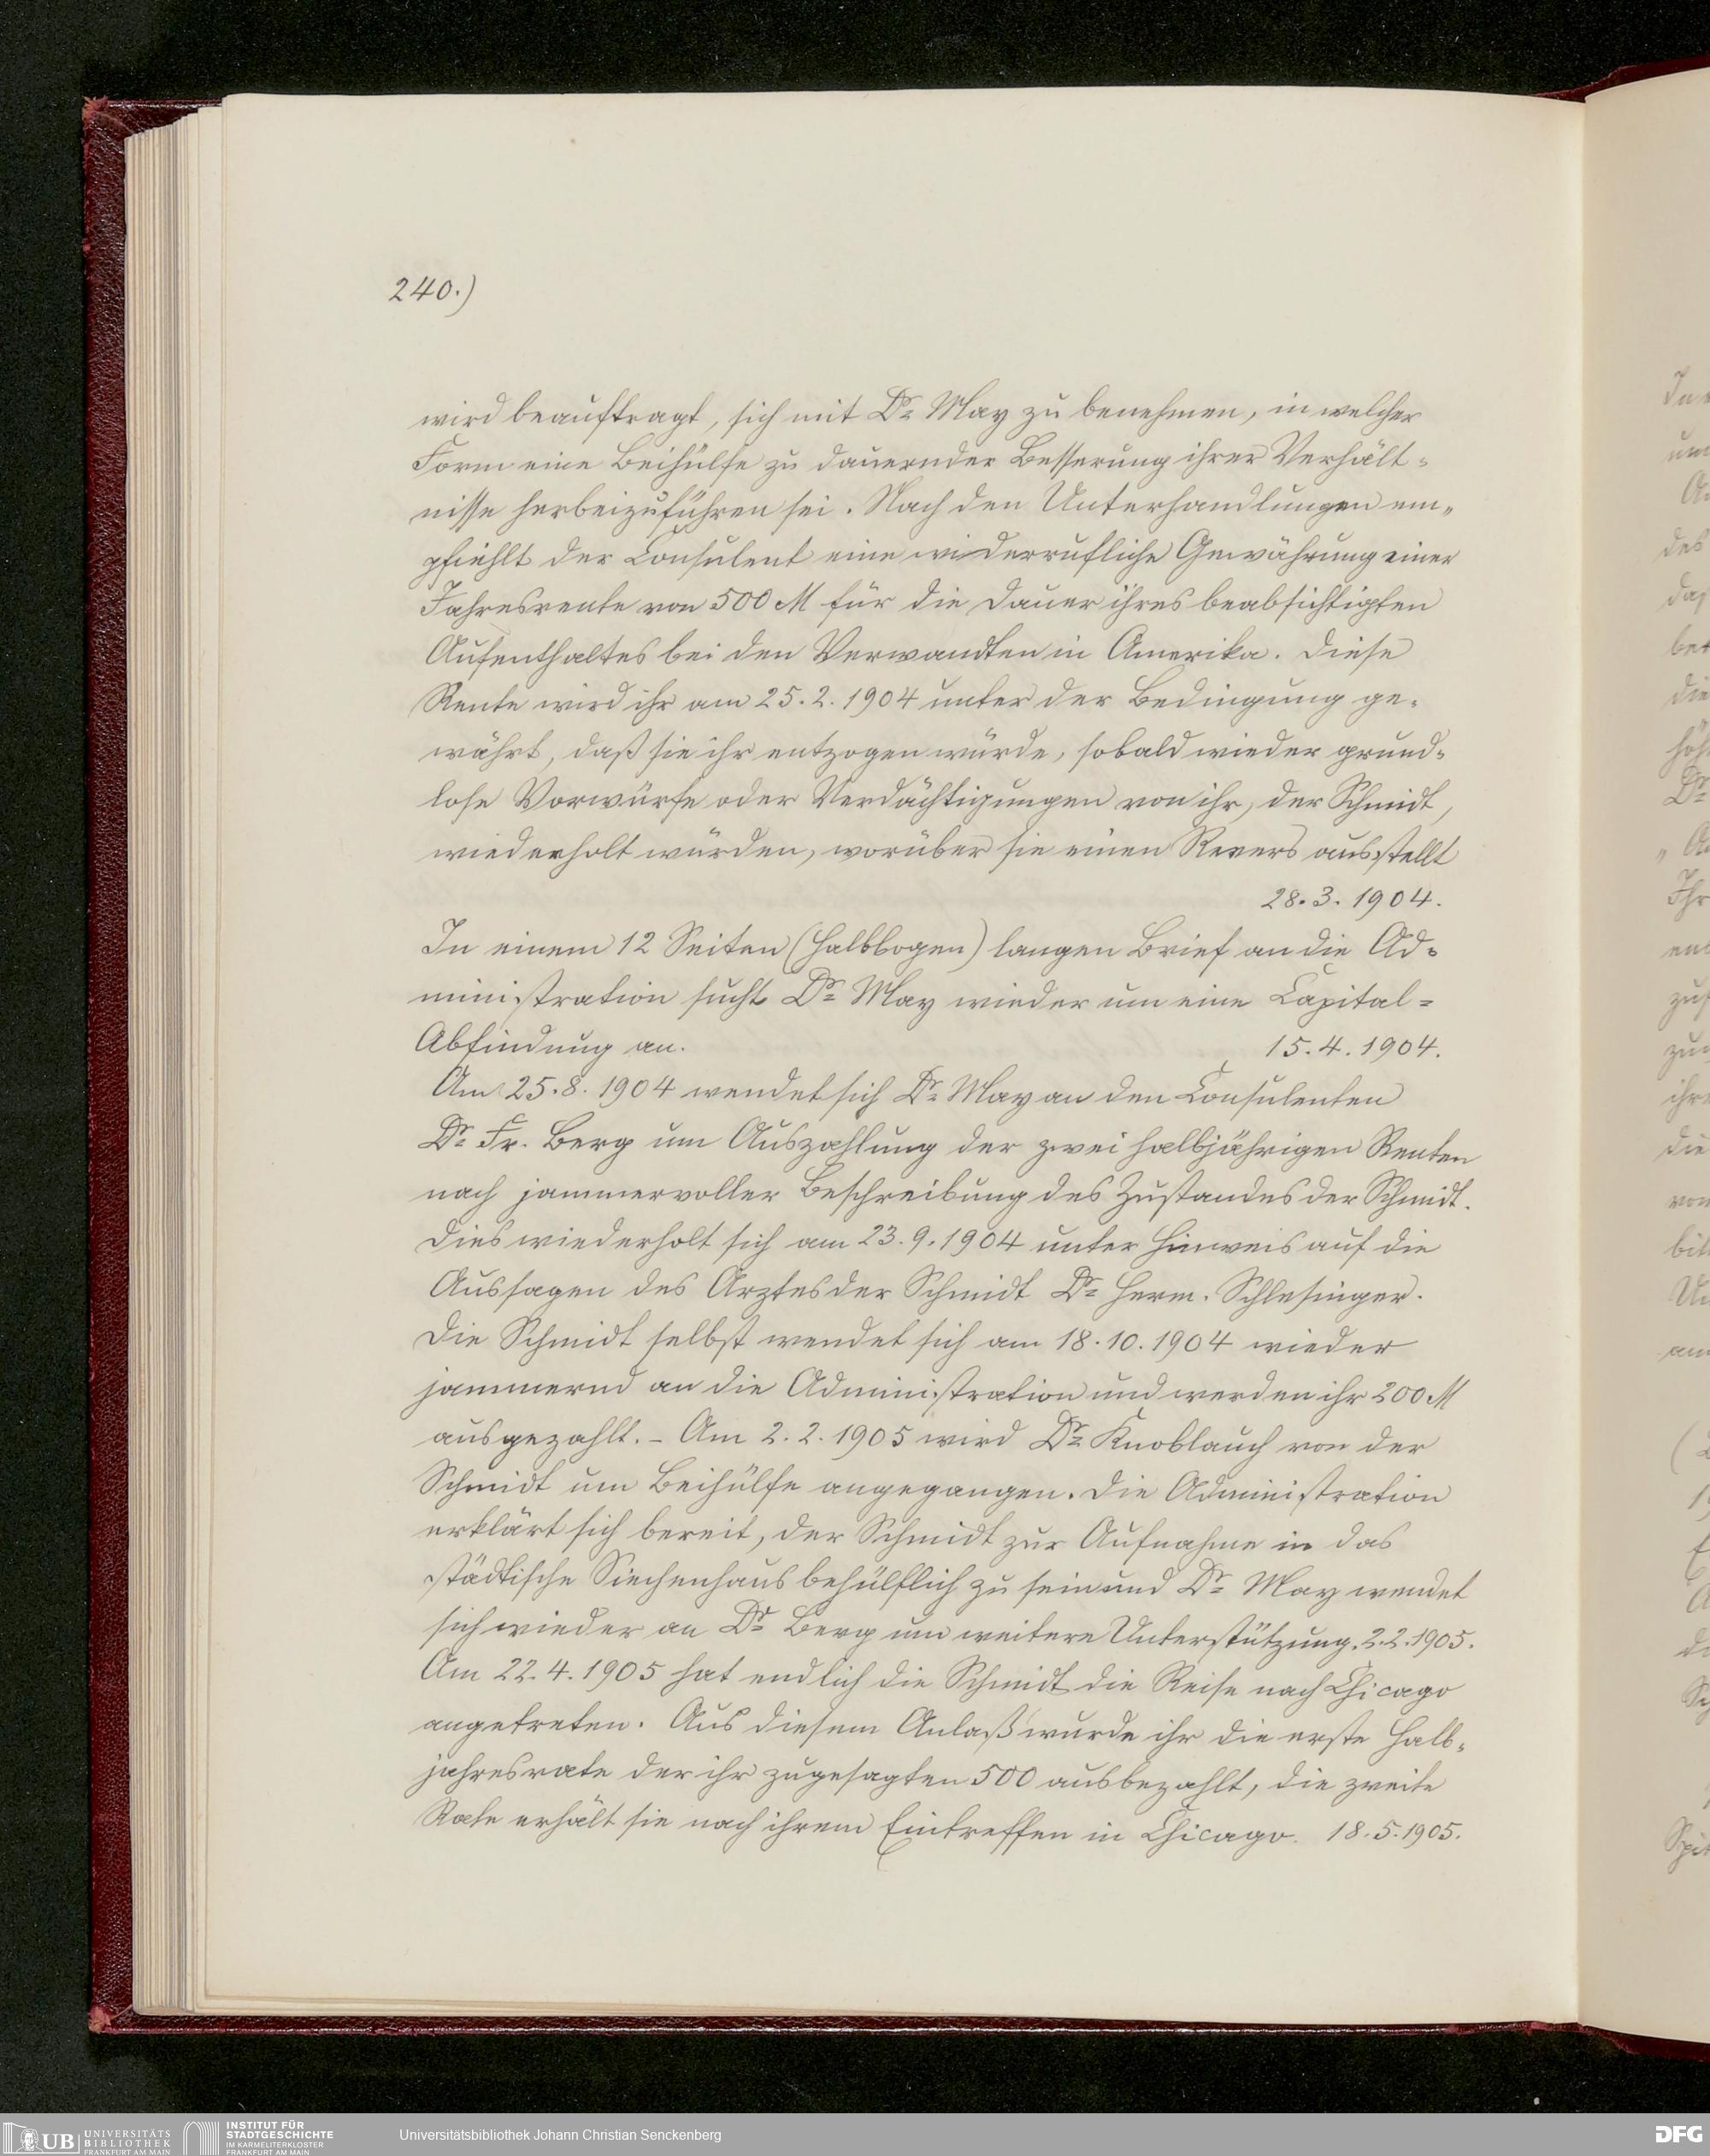 240.)
wird beauftragt, sich mit Dr. May zu benehmen, in welcher
Form eine Beihülfe zu dauernder Besserung ihrer Verhält-
nisse herbeizuführen sei. Nach den Unterhandlungen em-
pfiehlt der Consulent eine widerrufliche Gewährung einer
Jahresrente von 500 M für die Dauer ihres beabsichtigten
Aufenthaltes bei den Verwandten in Amerika. Diese
Rente wird ihr am 25. 2. 1904 unter der Bedingung ge-
währt, daß sie ihr entzogen würde, sobald wieder grund-
lose Vorwürfe oder Verdächtigungen von ihr, der Schmidt,
wiederholt würden, worüber sie einen Revers ausstellt
28. 3. 1904.
In einem 12 Seiten (Halbbogen) langen Brief an die Ad-
ministration sucht Dr. May wieder um eine Capital-
Abfindung an. 15. 4. 1904.
Am 25. 8. 1904 wendet sich Dr. May an den Consulenten
Dr. Fr. Berg um Auszahlung der zwei halbjährigen Renten
nach jammervoller Beschreibung des Zustandes der Schmidt.
Dies wiederholt sich am 23. 9. 1904 unter Hinweis auf die
Aussagen des Arztes der Schmidt Dr. Herm. Schlesinger.
Die Schmidt selbst wendet sich am 18. 10. 1904 wieder
jammernd an die Administration und werden ihr 200 M
ausgezahlt. – Am 2. 2. 1905 wird Dr. Knoblauch von der
Schmidt um Beihülfe angegangen. Die Administration
erklärt sich bereit, der Schmidt zur Aufnahme in das
städtische Siechenhaus behülflich zu sein und Dr. May wendet
sich wieder an Dr. Berg um weitere Unterstützung. 2. 2. 1905.
Am 22. 4. 1905 hat endlich die Schmidt die Reise nach Chicago
angetreten. Aus diesem Anlaß wurde ihr die erste Halb-
jahresrate der ihr zugesagten 500 ausbezahlt, die zweite
Rate erhält sie nach ihrem Eintreffen in Chicago. 18. 5. 1905.
UB UNIVERSITÄTS BIBLIOTHEK FRANKFURT AM MAIN
INSTITUT FÜR STADTGESCHICHTE IM KARMELITERKLOSTER FRANKFURT AM MAIN
Universitätsbibliothek Johann Christian Senckenberg
DFG